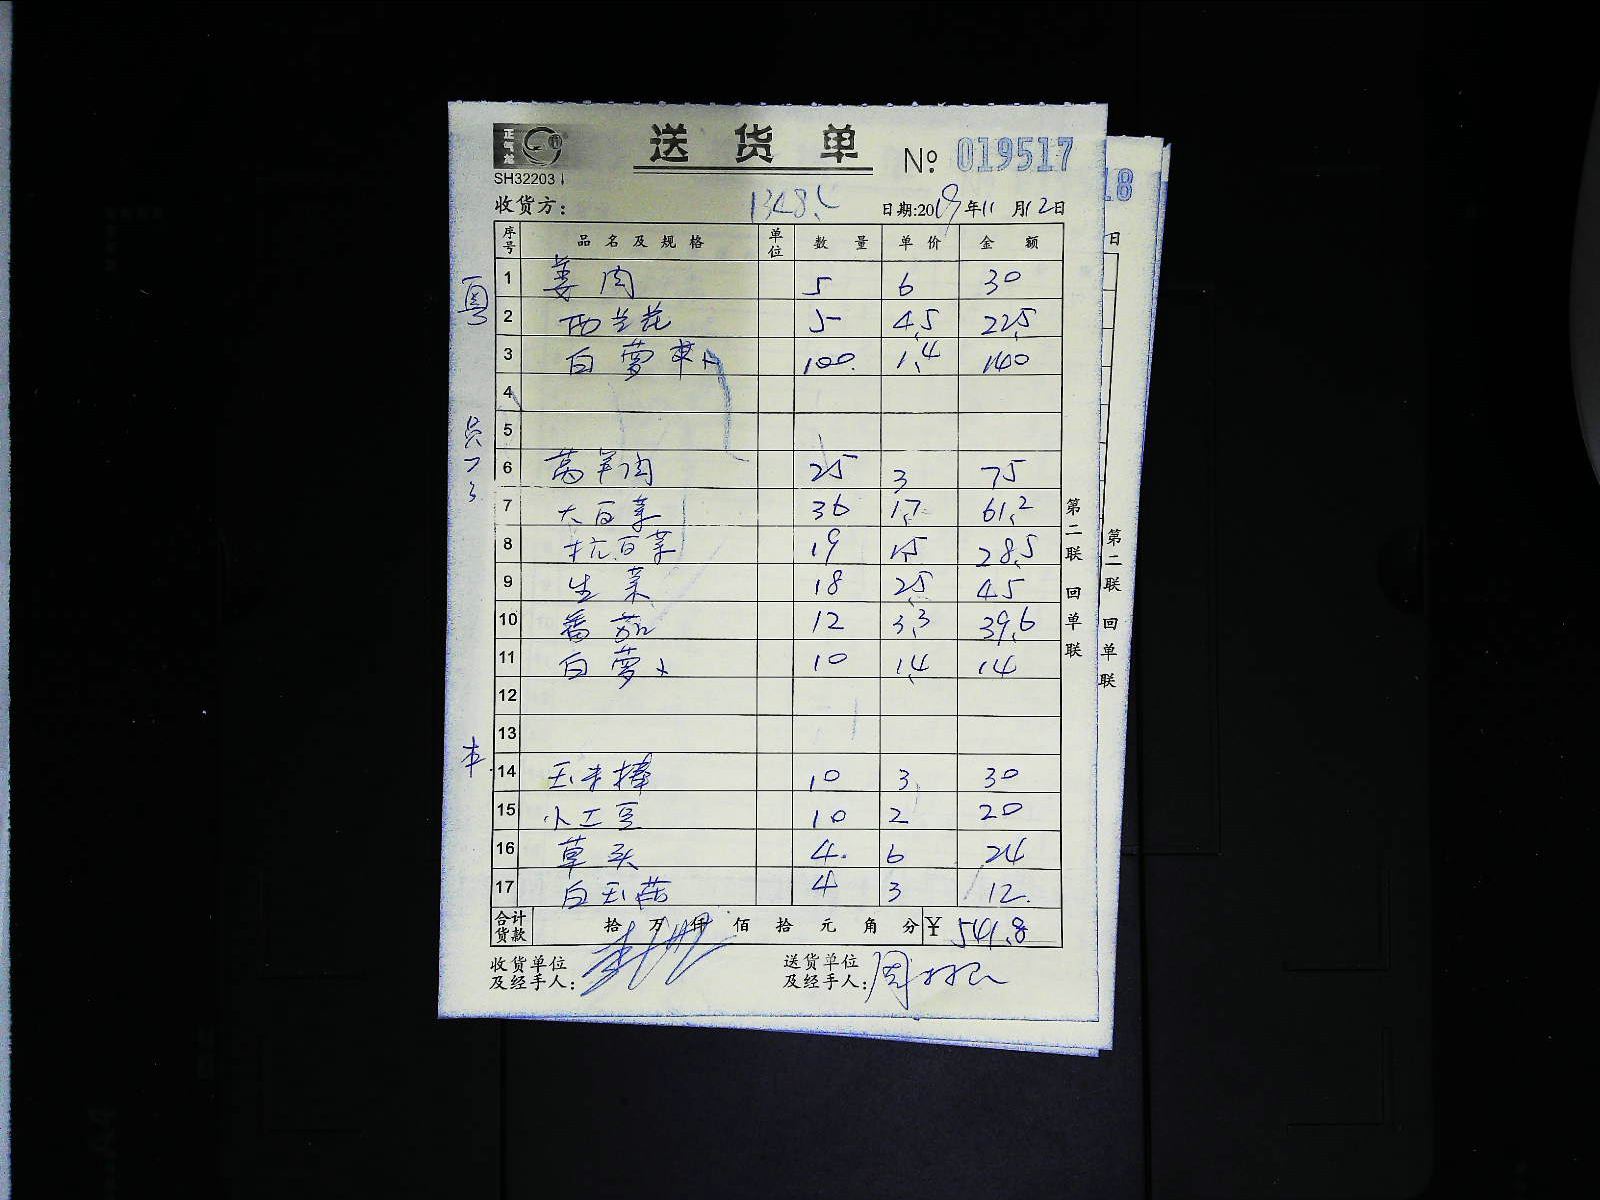 正气龙
送货单 № 019517
SH32203
18
收货方: 1348.
日期:2019年11月12日
日
序号 品名及规格 单位 数量 单价 金额
1 姜肉 5 6 30
粤
2 西兰花 5 4.5 22.5
3 白萝卜 100. 1.4 140
4
5
员
6 莴笋肉 25 3 75
7 大白菜 36 1.7 61.2
8 杭白菜 19 1.5 28.5
9 生菜 18 2.5 45
10 番茄 12 3.3 39.6
11 白萝卜 10 1.4 14
12
13
本
14 玉米棒 10 3 30
15 小豆 10 2 20
16 草头 4. 6 24
17 白玉菇 4 3 12.
合计货款 拾万仟佰拾元角分 ¥ 541.8
收货单位及经手人:
送货单位及经手人: 周
第二联 回单联
第二联 回单联